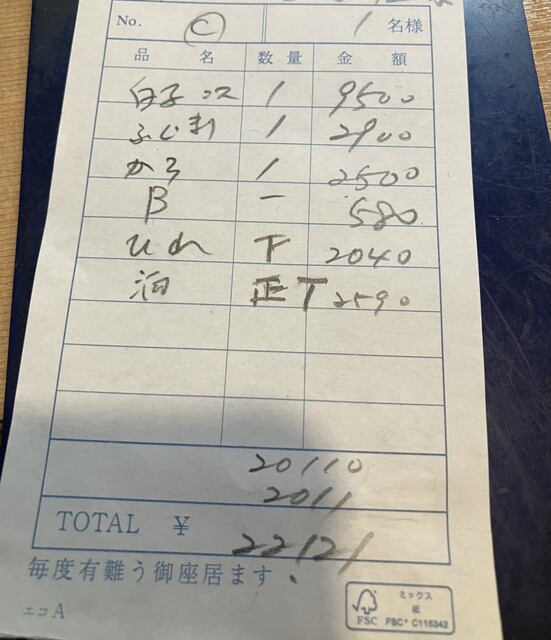 No. C 1 名様
品 名 数 量 金 額
白子コース 1 9500
1 2900
から 1 2500
B 一 580
ひれ 下 2040
酒 正T 2590
20110
2011
TOTAL ¥ 22121
毎度有難う御座居ます.
エコA
FSC ミックス 紙 FSC® C115342